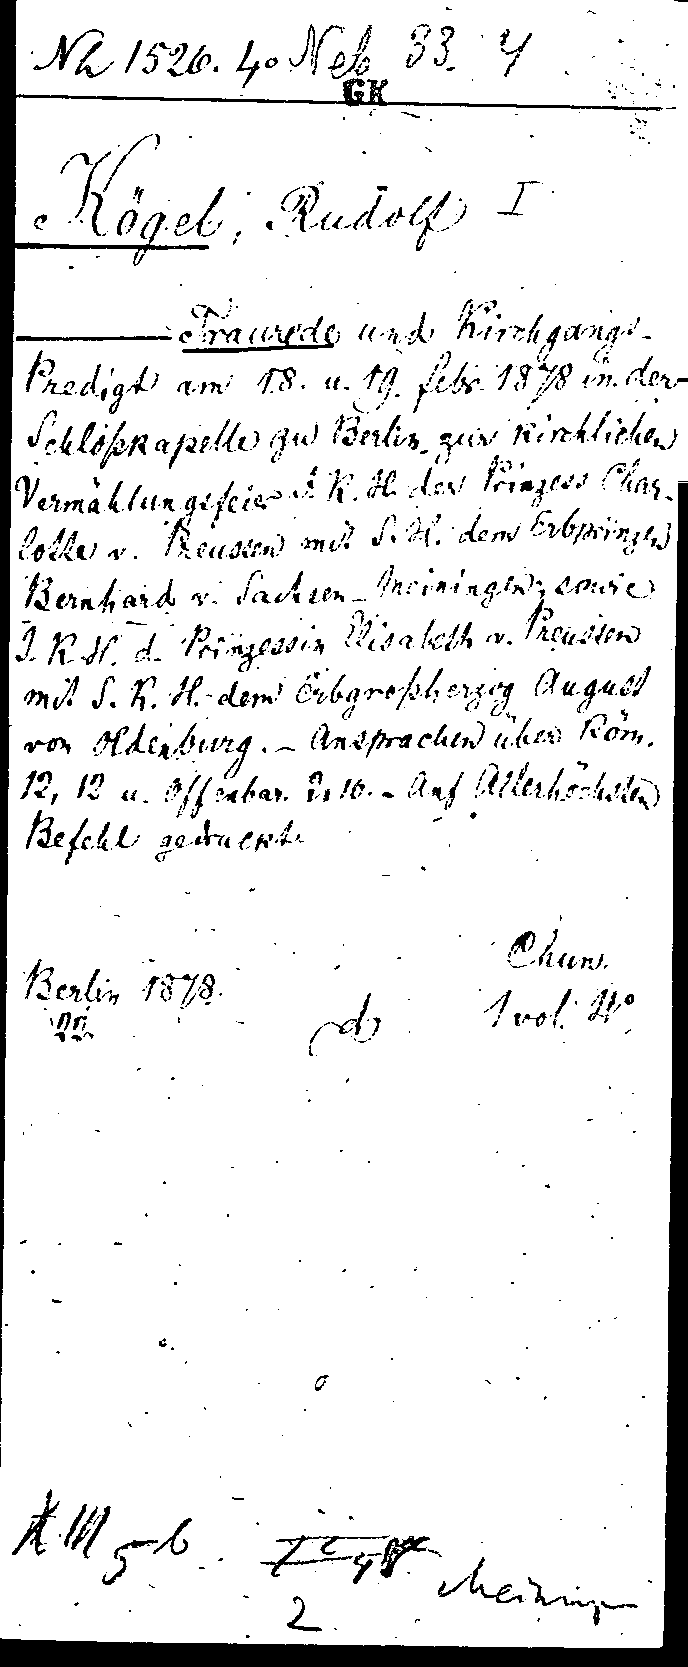 Nh 1526. 4° Neb 33. 4
GK
Kögel, Rudolf I
Traurede und Kirchgangs-
Predigt am 18. u. 19. febr. 1878 in der
Schloßkapelle zu Berlin zur kirchlichen
Vermählungsfeier I. K. H. der Prinzess Char-
lotte v. Preussen mit S. H. dem Erbprinzen
Bernhard v. Sachsen-Meiningen, sowie
I. K. H. d. Prinzessin Elisabeth v. Preussen
mit S. K. H. dem Erbgroßherzog August
von Oldenburg. - Ansprachen über Röm.
12, 12 u. Offenbar. 2, 10. - Auf Allerhöchsten
Befehl gedruckt.
Chun.
Berlin 1878.
1 vol. 4°
22.
d
5 b
2
Meining